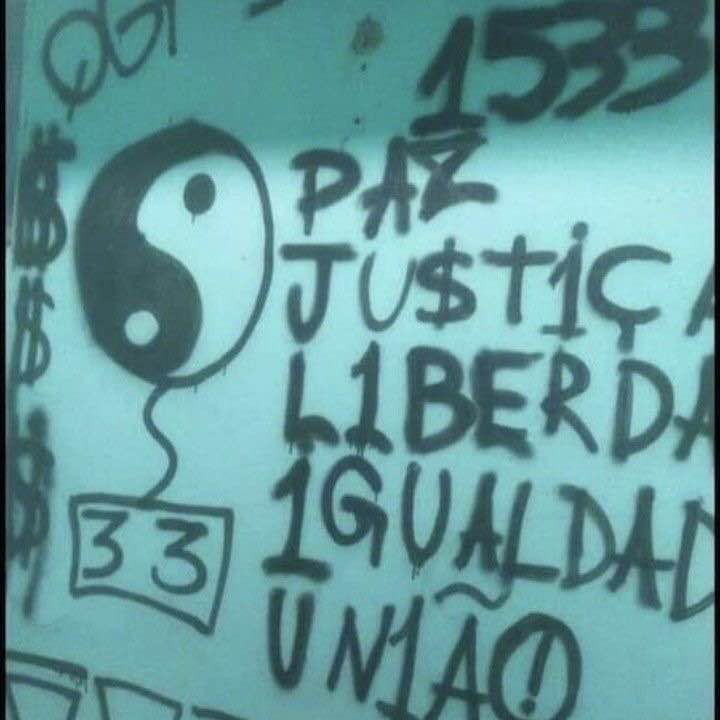 1533
PAZ
JU$T1ÇA
L1BERDA
1GUALDAD
UN1ÃO!
$
$
$
33